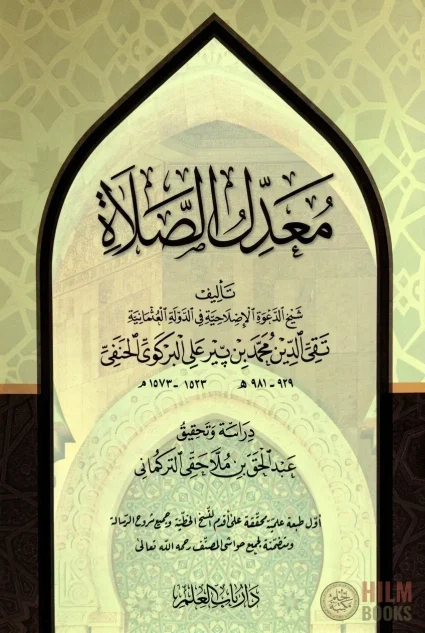 مُعَدِّلُ الصَّلَاةِ
تَأْلِيفُ
شَيْخِ الدَّعْوَةِ الْإِصْلَاحِيَّةِ فِي الدَّوْلَةِ الْعُثْمَانِيَّةِ
تَقِيِّ الدِّينِ مُحَمَّدِ بْنِ بِيرِ عَلِي الْبِرْكَوِيِّ الْحَنَفِيِّ
٩٢٩ - ٩٨١ هـ ١٥٢٣ - ١٥٧٣ م
دِرَاسَةُ وَتَحْقِيقُ
عَبْدُ الْحَقِّ بْنُ مُلَّا حَقِّي التُّرْكُمَانِي
أوّل طبعة علميّة محقّقة على أقدم النُّسخ الخطّيّة وجميع شروح الرسالة
ومتضمّنة لجميع حواشي المصنّف رحمه الله تعالى
دار باب العلم
HILM
BOOKS